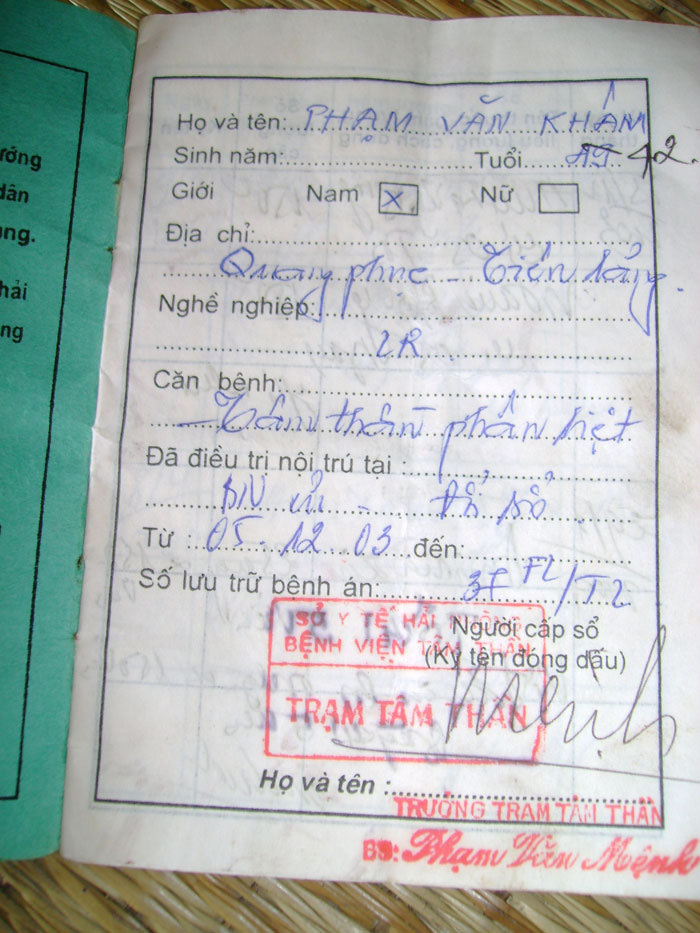 ướng
dân
ng.
hải
ng
Họ và tên: PHẠM VĂN KHÂM
Sinh năm: Tuổi 42.
Giới Nam x Nữ
Địa chỉ:
Quang phục - Tiên Lãng.
Nghề nghiệp:
LR
Căn bệnh:
Tâm thần phân liệt
Đã điều trị nội trú tại :
BV
Từ : 05.12.03 đến:
Số lưu trữ bệnh án: 37 F2/T2
SỞ Y TẾ HẢI PHÒNG
BỆNH VIỆN TÂM THẦN
TRẠM TÂM THẦN
Người cấp sổ
(Ký tên đóng dấu)
Họ và tên :
TRƯỞNG TRẠM TÂM THẦN
BS: Phạm Văn Mệnh